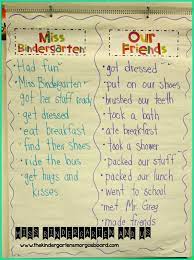 Miss
Bindergarten
Had fun
Miss Bindergarten
got her stuff ready
get dressed
eat breakfast
find their shoes
ride the bus
get hugs and
kisses
Our
Friends
got dressed
put on our shoes
brushed our teeth
took a bath
ate breakfast
took a shower
packed our stuff
packed our lunch
went to school
met Mr. Greg
made friends
MISS KINDERGARTEN AND US
www.thekindergartensmorgasboard.com